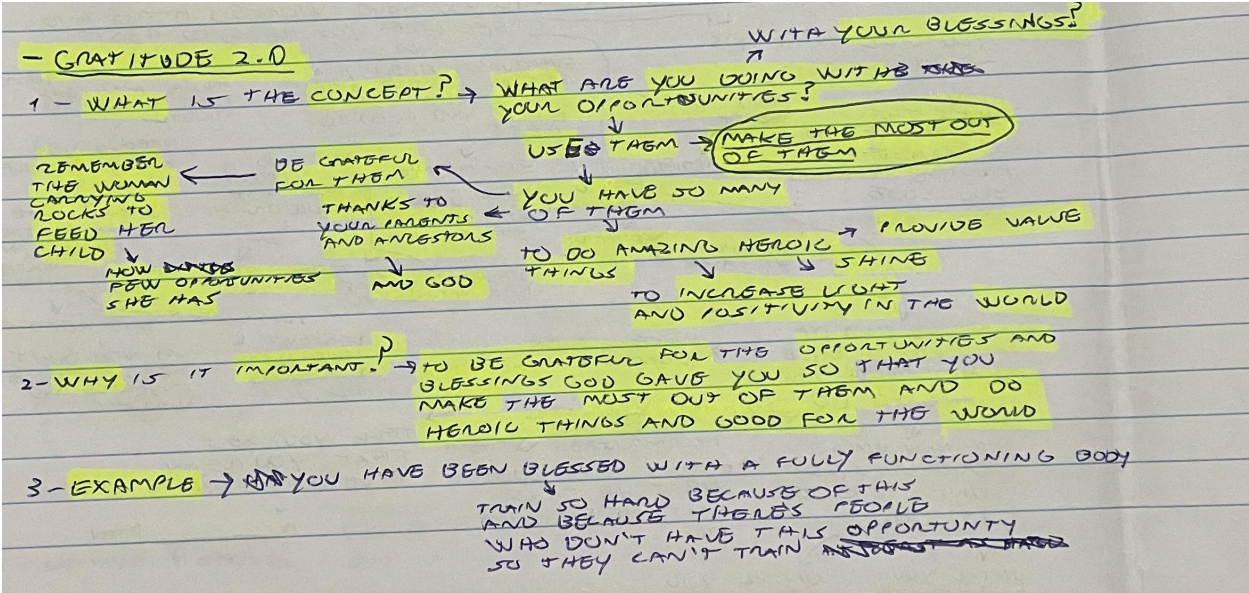 WITH YOUR BLESSINGS?
- GRATITUDE 2.0
1 - WHAT IS THE CONCEPT? → WHAT ARE YOU DOING WITH
YOUR OPPORTUNITIES?
USE THEM → MAKE THE MOST OUT
OF THEM
YOU HAVE SO MANY
OF THEM
BE GRATEFUL
FOR THEM
REMEMBER
THE WOMAN
CARRYING
ROCKS TO
FEED HER
CHILD
HOW
FEW OPPORTUNITIES
SHE HAS
THANKS TO
YOUR PARENTS
AND ANCESTORS
AND GOD
TO DO AMAZING HEROIC
THINGS
→ PROVIDE VALUE
SHINE
TO INCREASE LIGHT
AND POSITIVITY IN THE WORLD
2 - WHY IS IT IMPORTANT? → TO BE GRATEFUL FOR THE OPPORTUNITIES AND
BLESSINGS GOD GAVE YOU SO THAT YOU
MAKE THE MOST OUT OF THEM AND DO
HEROIC THINGS AND GOOD FOR THE WORLD
3 - EXAMPLE → YOU HAVE BEEN BLESSED WITH A FULLY FUNCTIONING BODY
TRAIN SO HARD BECAUSE OF THIS
AND BECAUSE THERE'S PEOPLE
WHO DON'T HAVE THIS OPPORTUNTY
SO THEY CAN'T TRAIN